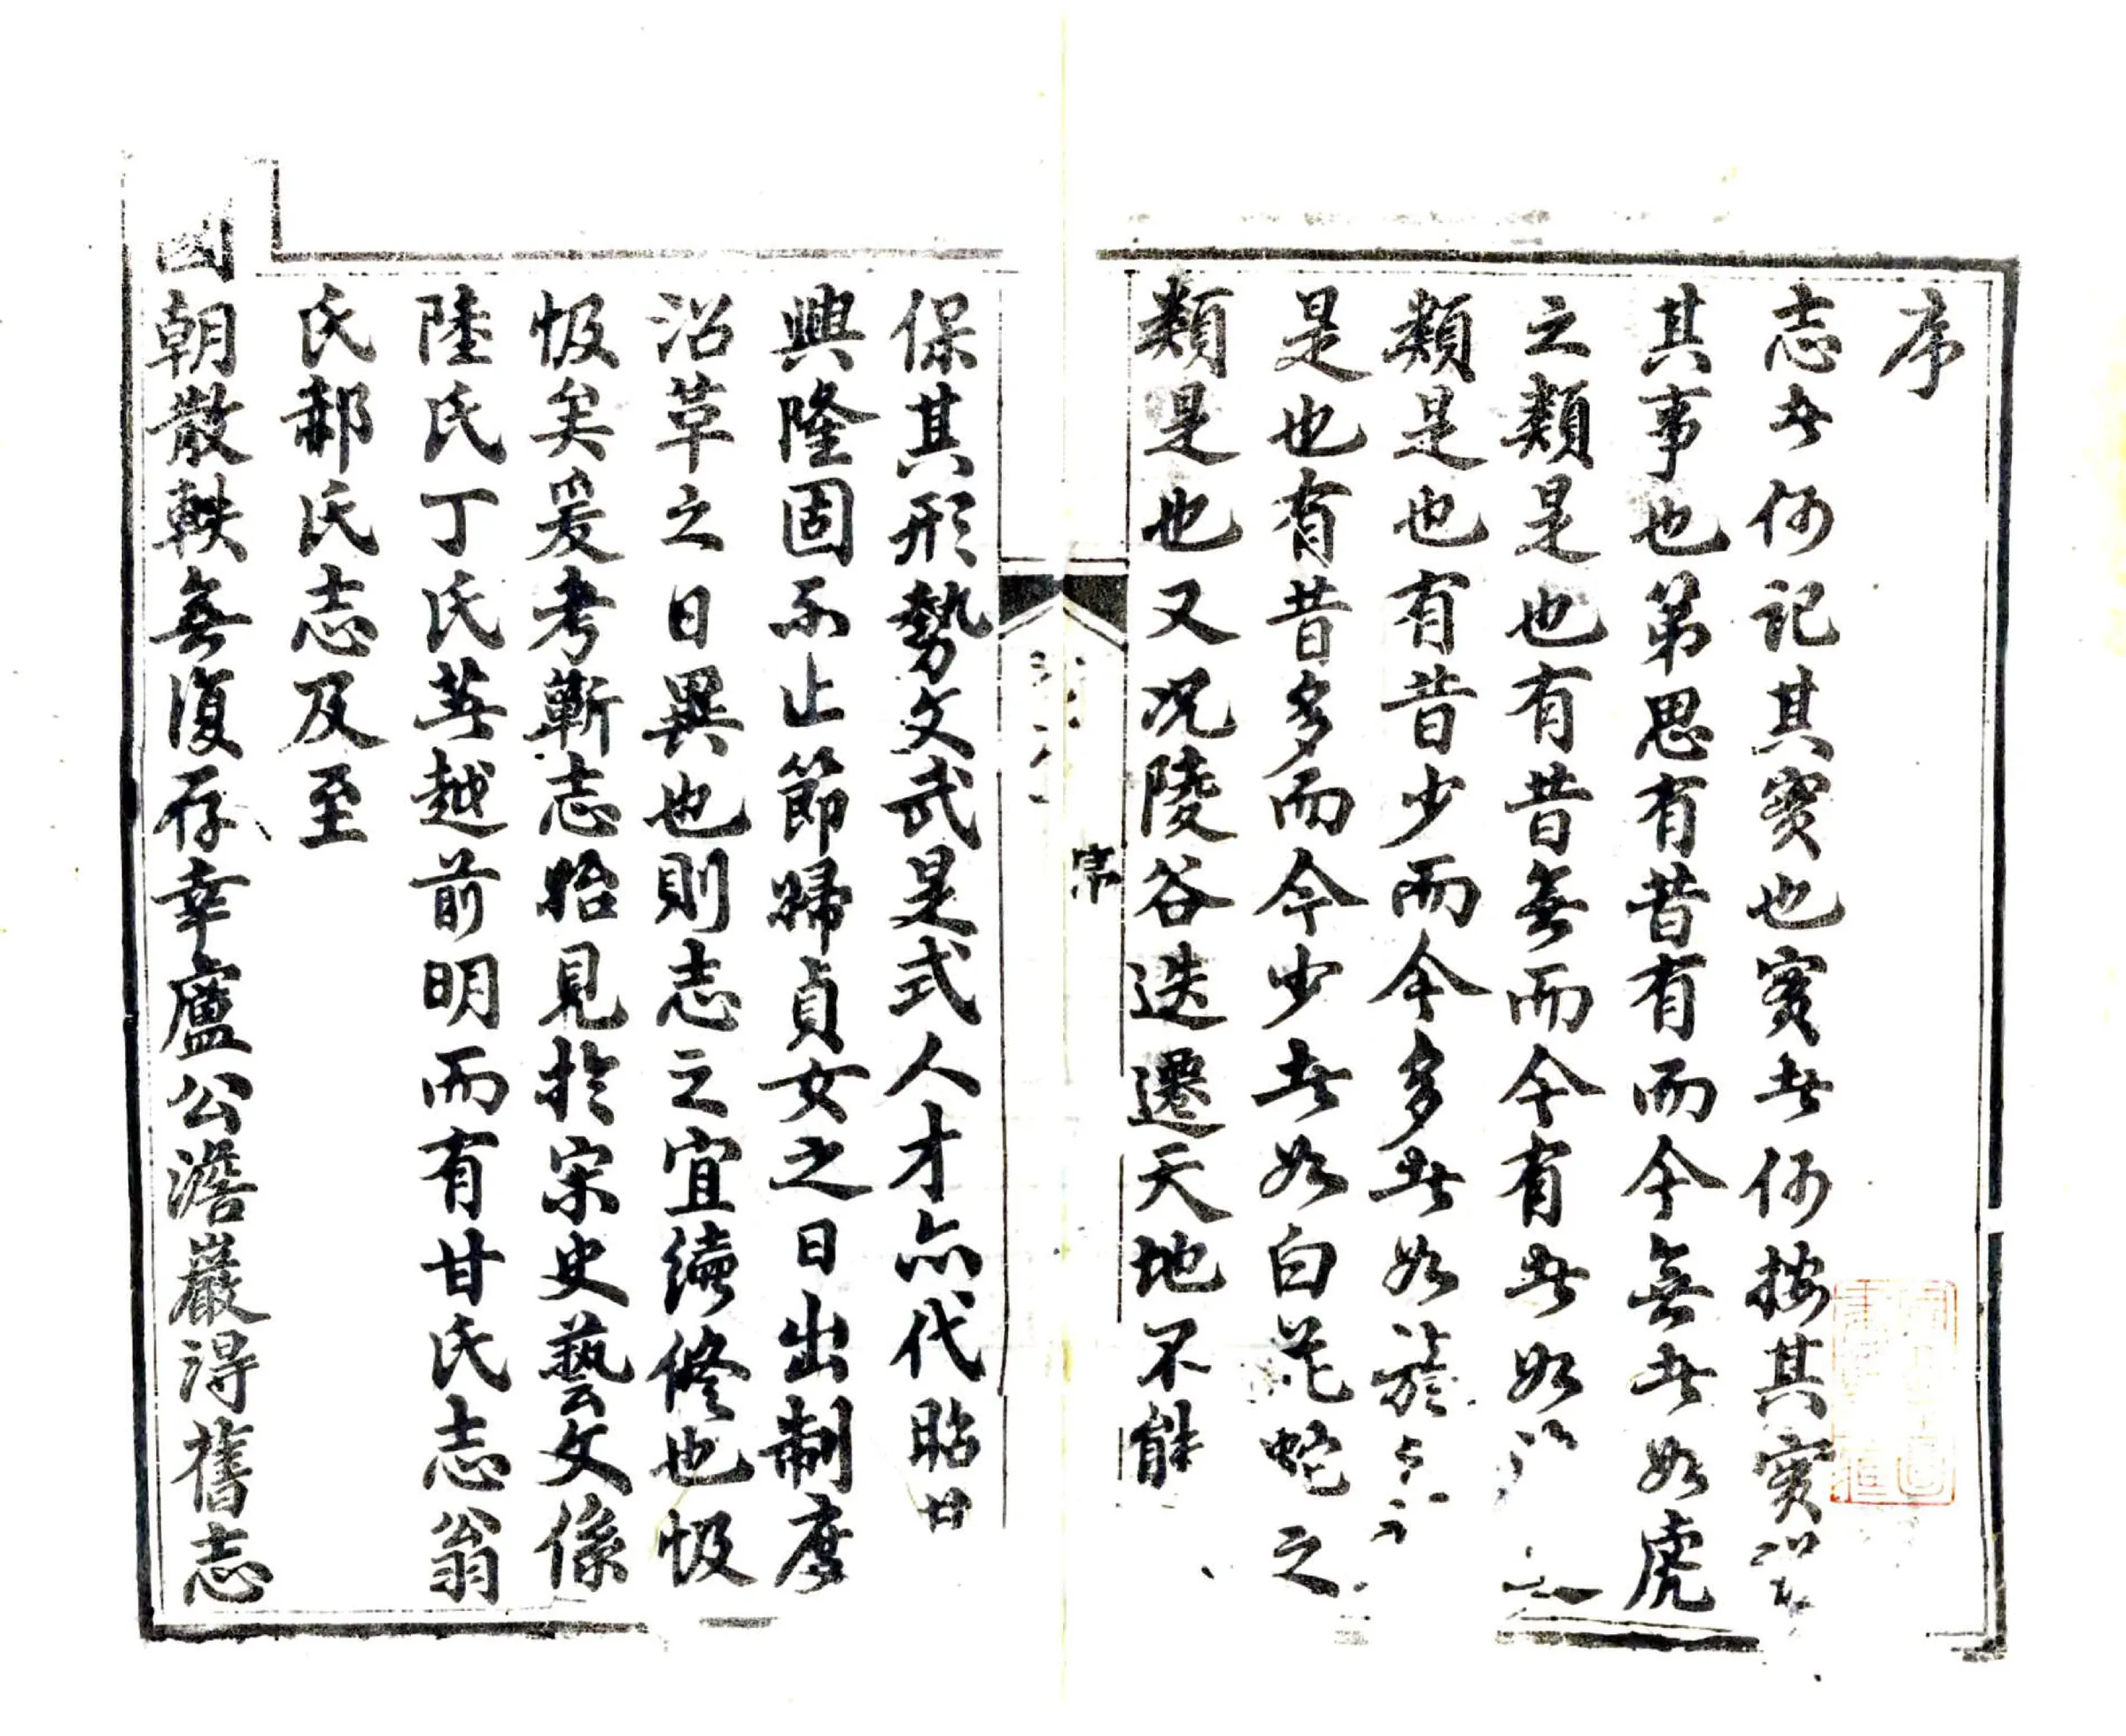 序
志者何記其實也實者何按其實
其事也第思有昔有而今無者如虎
之類是也有昔無而今有者如
類是也有昔少而今多者如
是也有昔多而今少者如白花蛇之
類是也又况陵谷迭遷天地不能
序
保其形勢文武是式人才亦代昭
興隆固不止節婦貞女之日出制度
沿革之日異也則志之宜續修也恨
恨矣爰考蘄志始見於宋史藝文係
陸氏丁氏莾越前明而有甘氏志翁
氏郝氏志及至
國朝散軼無復存幸盧公澹巖得舊志